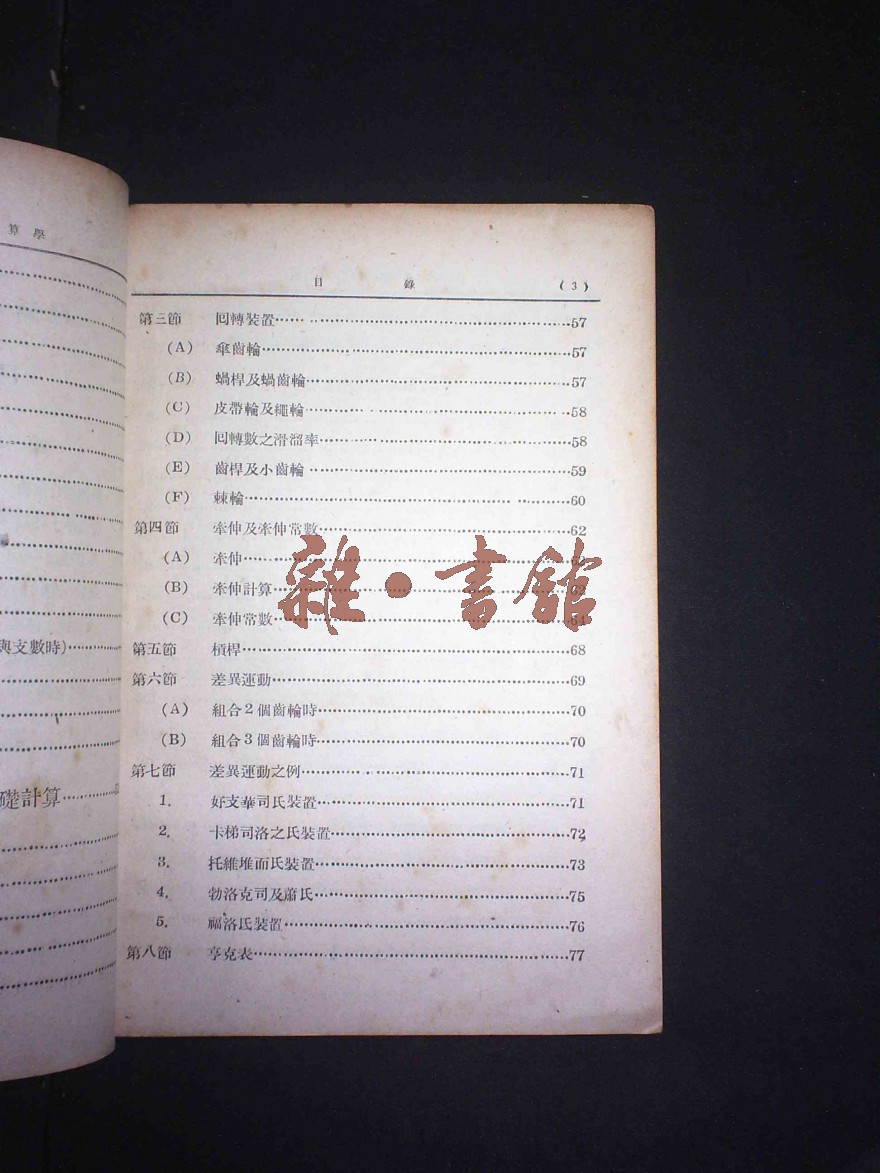 算學
與支數時)
礎計算
目錄 (3)
第三節 囘轉裝置 57
(A) 傘齒輪 57
(B) 蝸桿及蝸齒輪 57
(C) 皮帶輪及繩輪 58
(D) 囘轉數之滑溜率 58
(E) 齒桿及小齒輪 59
(F) 棘輪 60
第四節 牽伸及牽伸常數 62
(A) 牽伸 62
(B) 牽伸計算 62
(C) 牽伸常數 64
第五節 槓桿 68
第六節 差異運動 69
(A) 組合2個齒輪時 70
(B) 組合3個齒輪時 70
第七節 差異運動之例 71
1. 好支華司氏裝置 71
2. 卡梯司洛之氏裝置 72
3. 托維堆而氏裝置 73
4. 勃洛克司及蕭氏 75
5. 福洛氏裝置 76
第八節 亨克表 77
雜·書館